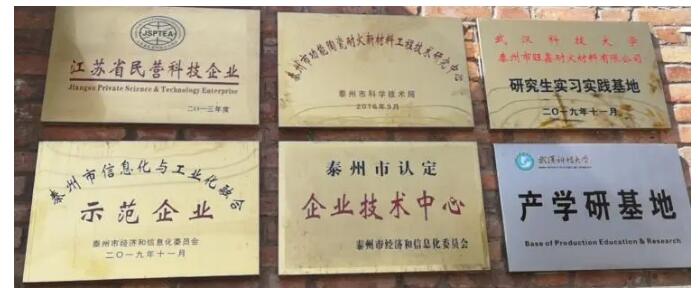 JSPTEA
江苏省民营科技企业
Jiangsu Private Science & Technology Enterprise
二○一三年度
泰州市功能陶瓷耐火新材料工程技术研究中心
泰州市科学技术局
2016年9月
武汉科技大学
泰州市旺鑫耐火材料有限公司
研究生实习实践基地
二○一九年十一月
泰州市信息化与工业化融合
示范企业
泰州市经济和信息化委员会
二○一九年十一月
泰州市认定
企业技术中心
泰州市经济和信息化委员会
武汉科技大学
产学研基地
Base of Production Education & Research